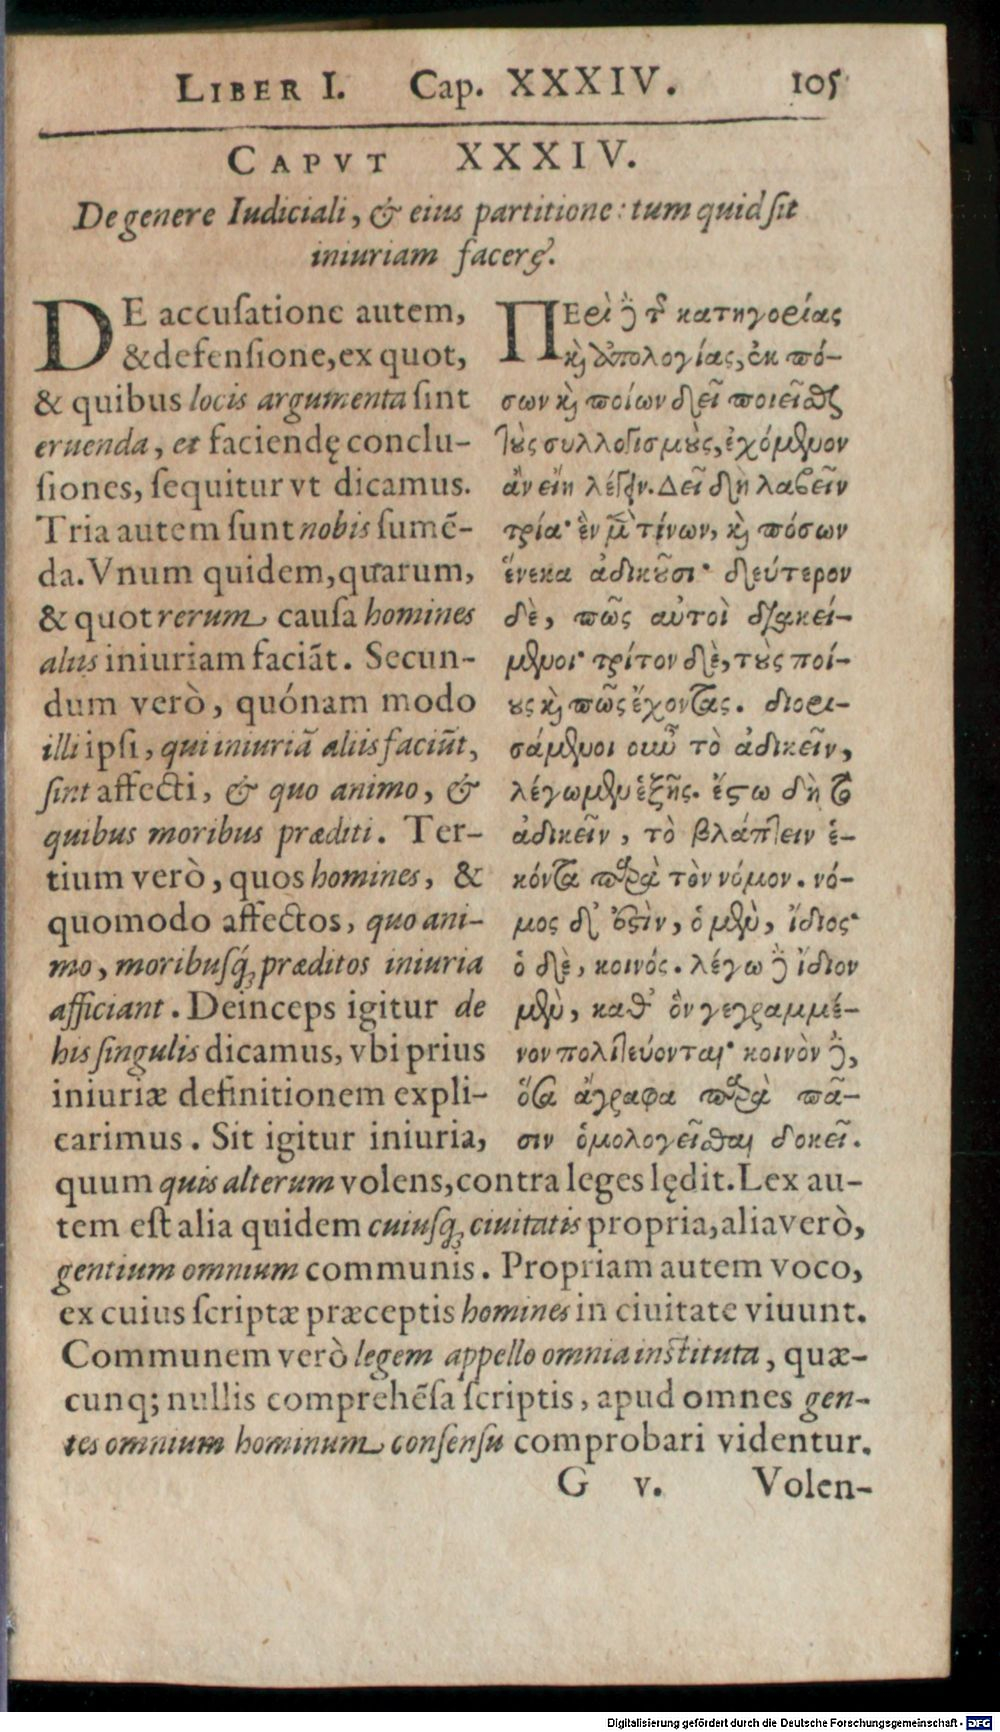 LIBER I. Cap. XXXIV. 105
CAPVT XXXIV.
De genere Iudiciali, & eius partitione: tum quid ſit
iniuriam facere.
DE accuſatione autem,
& defenſione, ex quot,
& quibus locis argumenta ſint
eruenda, et faciendę conclu-
ſiones, ſequitur vt dicamus.
Tria autem ſunt nobis ſumē-
da. Vnum quidem, quarum,
& quot rerum cauſa homines
aliis iniuriam faciāt. Secun-
dum verò, quónam modo
illi ipſi, qui iniuriā aliis faciūt,
ſint affecti, & quo animo, &
quibus moribus præditi. Ter-
tium verò, quos homines, &
quomodo affectos, quo ani-
mo, moribuſq́; præditos iniuria
afficiant. Deinceps igitur de
his ſingulis dicamus, vbi prius
iniuriæ definitionem expli-
carimus. Sit igitur iniuria,
ΠΕρὶ ϳ̀ τ κατηγορίας
κὶ ἀπολογίας, ἐκ πό-
σων κὶ ποίων δεῖ ποιεῖσθ
τοὺς συλλογισμοὺς, ἐχόμενον
ἂν εἴη λέγειν. Δεῖ δὴ λαβεῖν
τρία· ἓν μ τίνων, κὶ πόσων
ἕνεκα ἀδικοῦσι· δεύτερον
δὲ, πῶς αὐτοὶ διακεί-
μενοι· τρίτον δὲ, τοὺς ποί-
ους κὶ πῶς ἔχοντας. διορι-
σάμενοι οὖν τὸ ἀδικεῖν,
λέγωμεν ἑξῆς. ἔστω δὴ τὸ
ἀδικεῖν, τὸ βλάπτειν ἑ-
κόντα παρὰ τὸν νόμον. νό-
μος δ' ἐστὶν, ὁ μὲν, ἴδιος·
ὁ δὲ, κοινός. λέγω δὲ ἴδιον
μὲν, καθ' ὃν γεγραμμέ-
νον πολιτεύονται· κοινὸν δὲ,
ὅσα ἄγραφα παρὰ πᾶ-
σιν ὁμολογεῖσθαι δοκεῖ.
quum quis alterum volens, contra leges lędit. Lex au-
tem eſt alia quidem cuiuſq; ciuitatis propria, alia verò,
gentium omnium communis. Propriam autem voco,
ex cuius ſcriptæ præceptis homines in ciuitate viuunt.
Communem verò legem appello omnia inſtituta, quæ-
cunq; nullis comprehēſa ſcriptis, apud omnes gen-
tes omnium hominum conſenſu comprobari videntur.
G v. Volen-
Digitalisierung gefördert durch die Deutsche Forschungsgemeinschaft - DFG